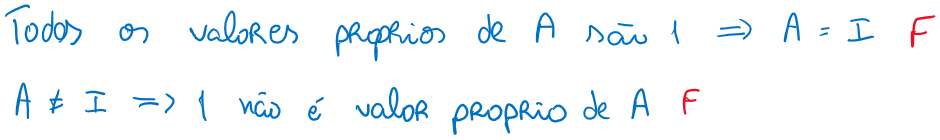 Todos os valores proprios de A são 1 => A = I F
A ≠ I => 1 não é valor proprio de A F